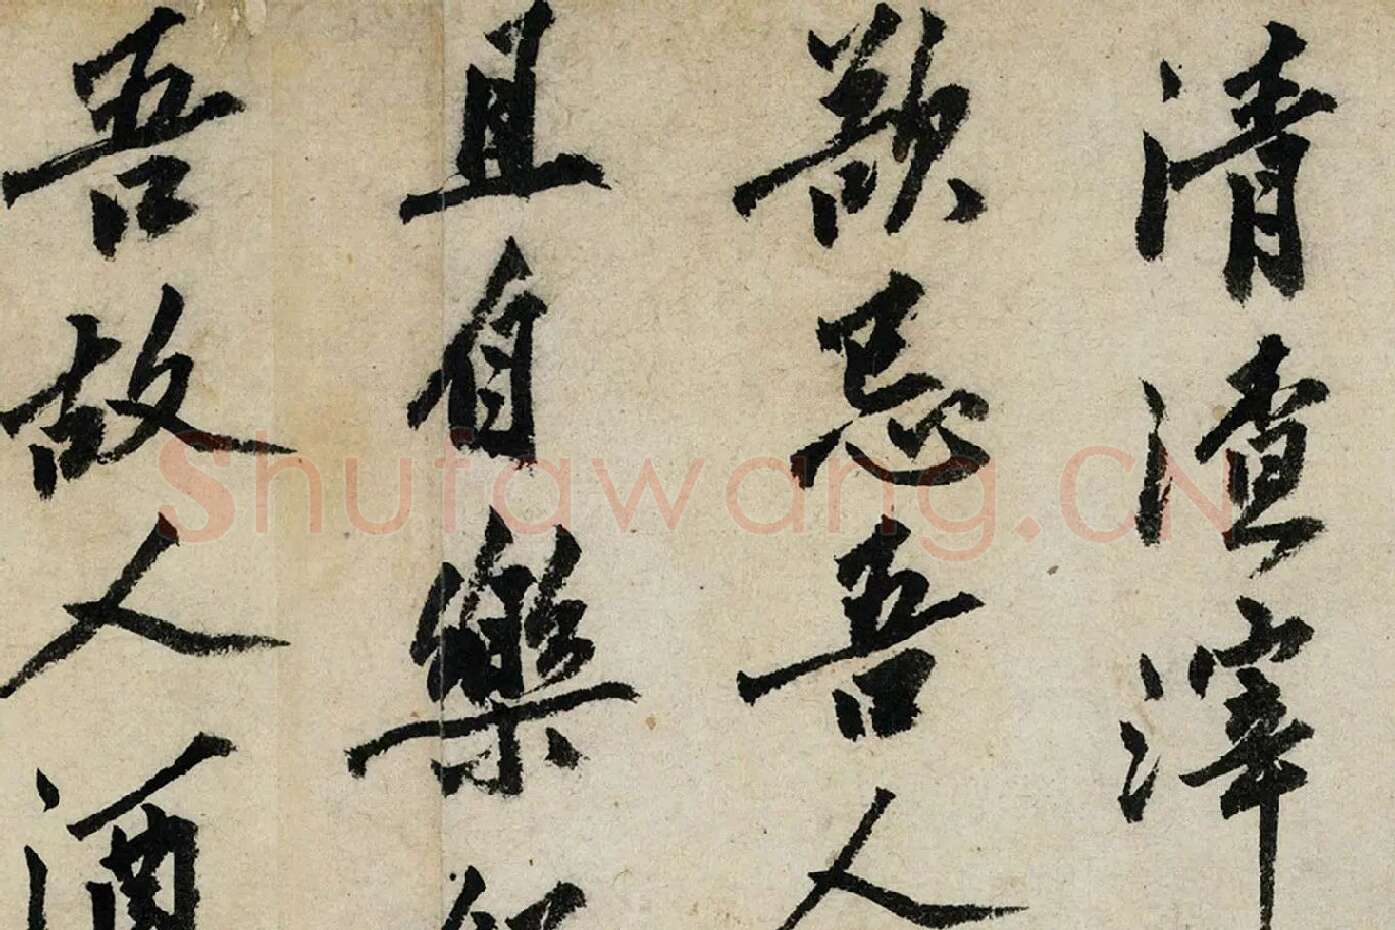 清渣滓
歆忌吾人
且自樂
吾故人酒
Shufawang.CN